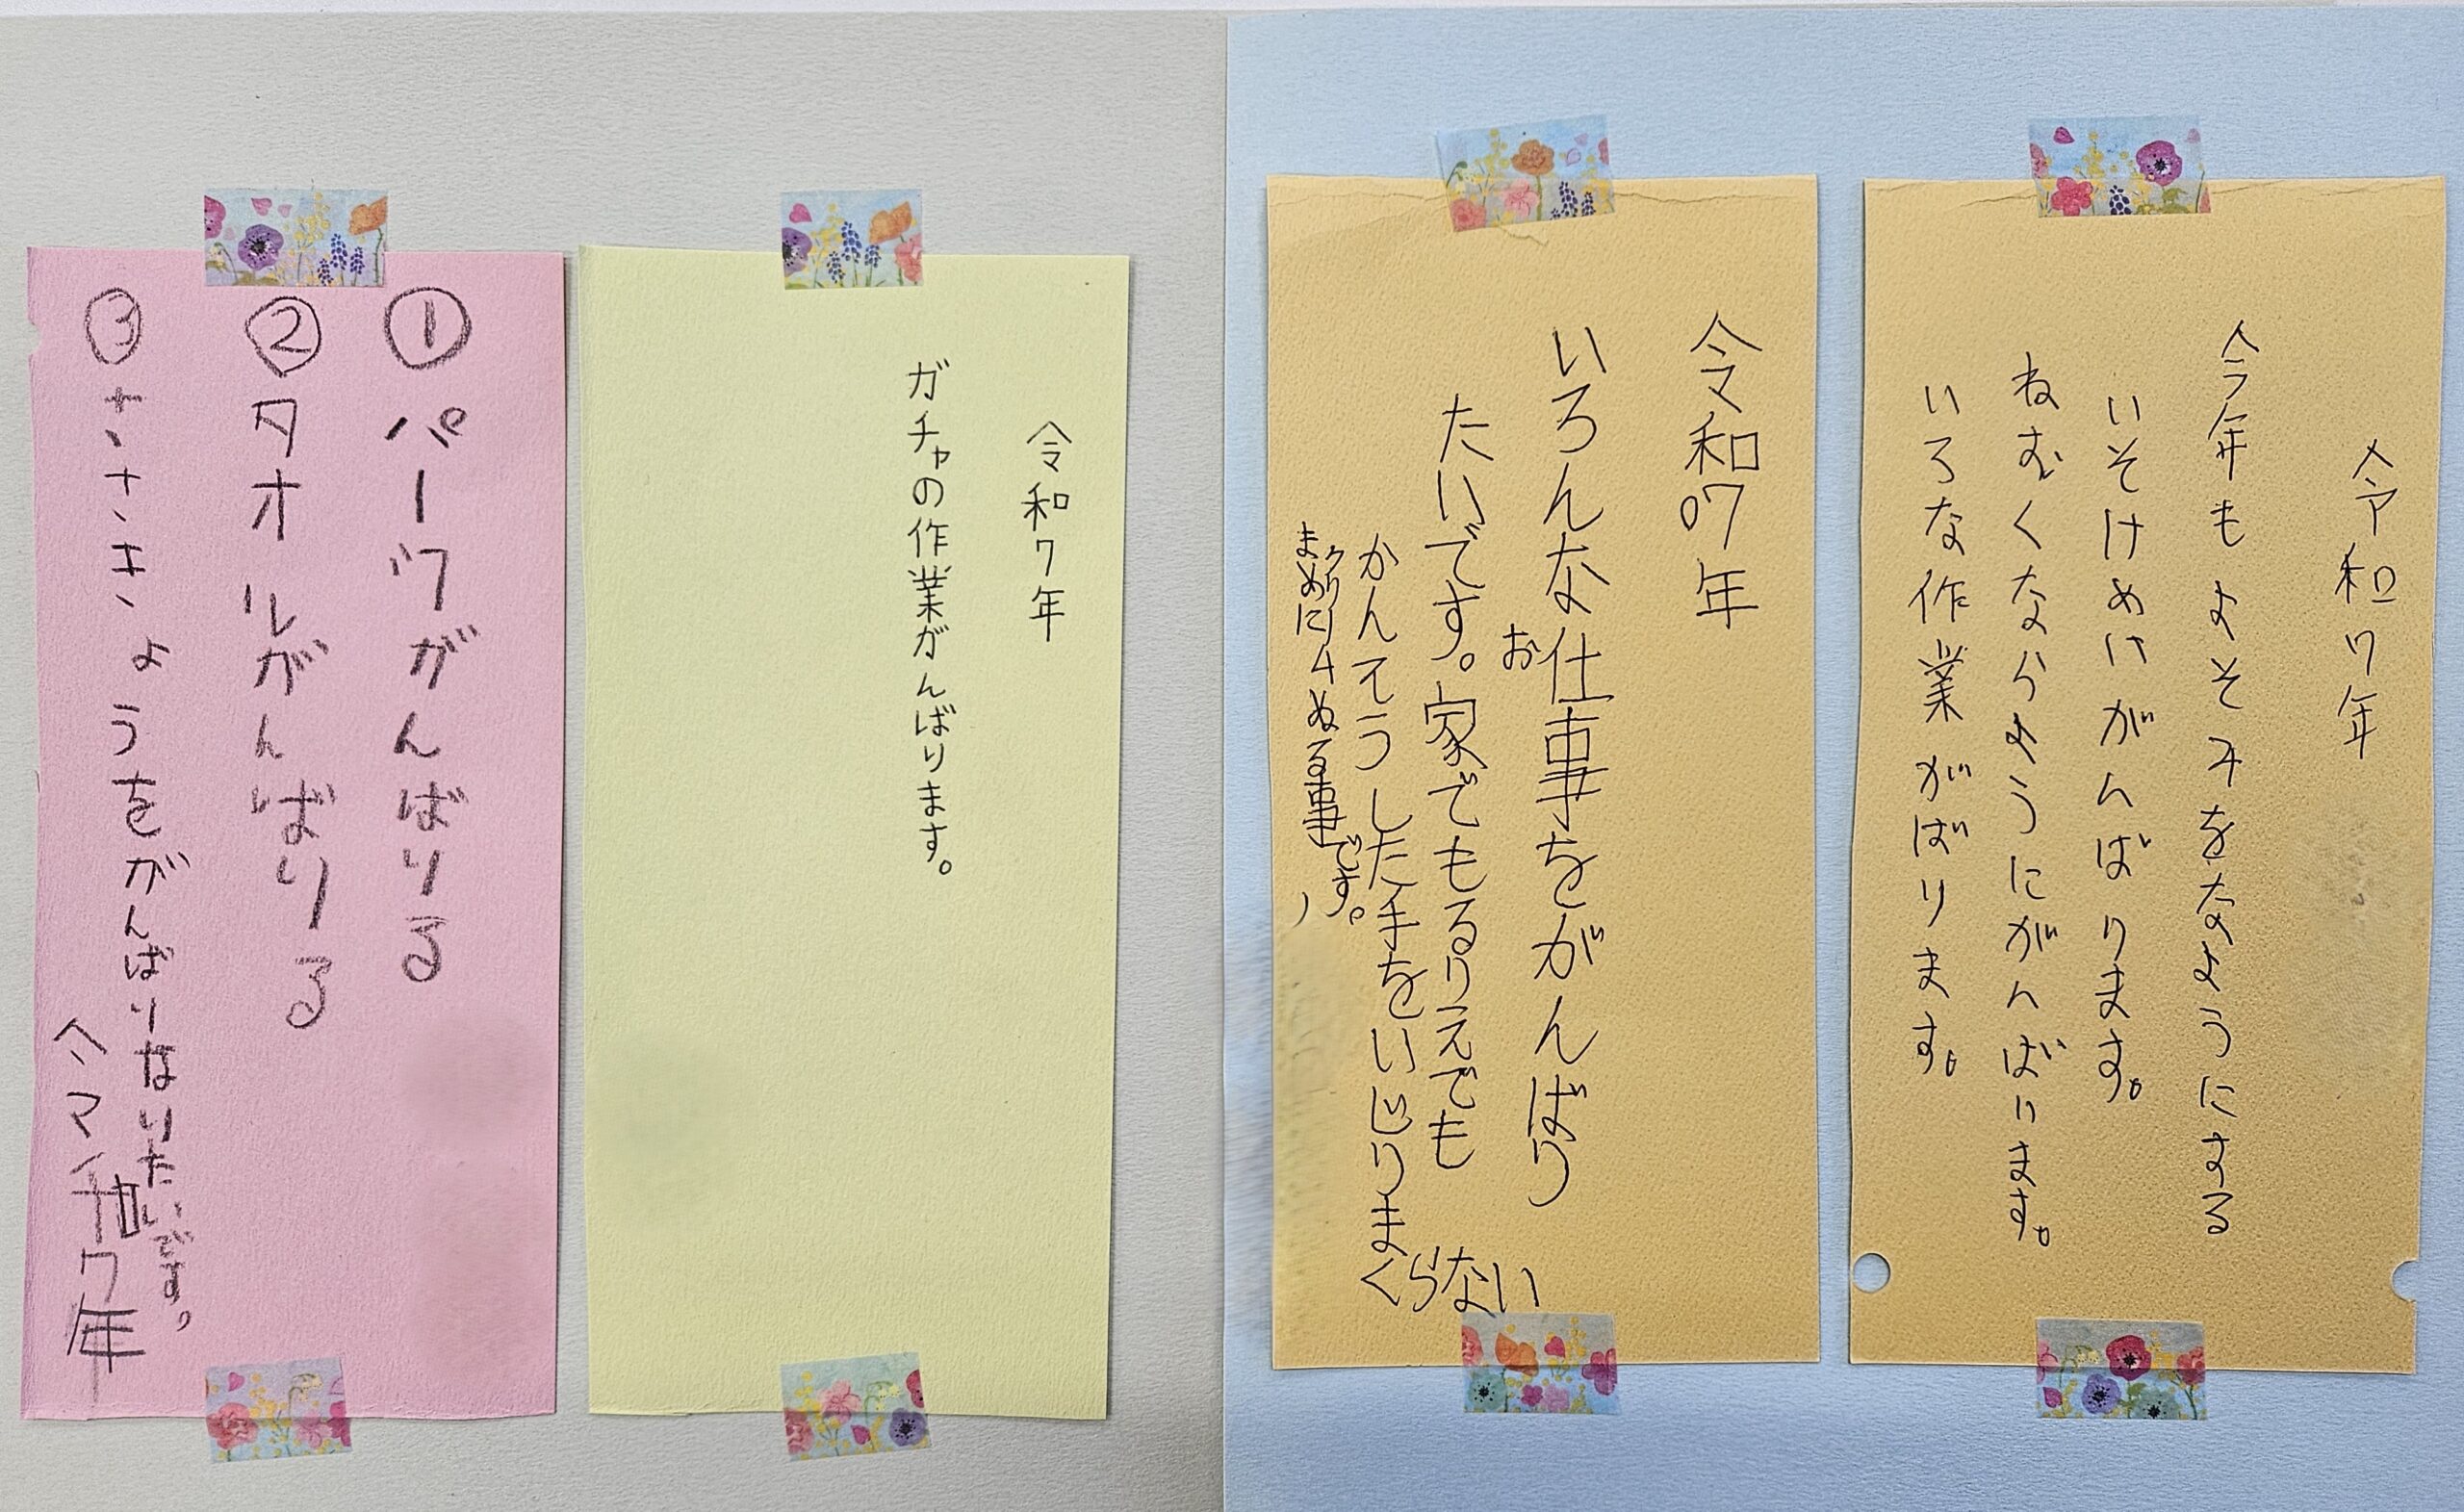 令和7年
今年もよそみをなようにする
いそけめいがんばります。
ねむくなならようにがんばります。
いろな作業がばります。
令和07年
いろんなお仕事をがんばり
たいです。家でもるりえでも
かんそうした手をいじりまくらない
まめにクリームぬる事です。
令和7年
ガチャの作業がんばります。
① パーツがんばりる
② タオルがんばりる
③ ささきようをがんばりなりたいです。
令和7年